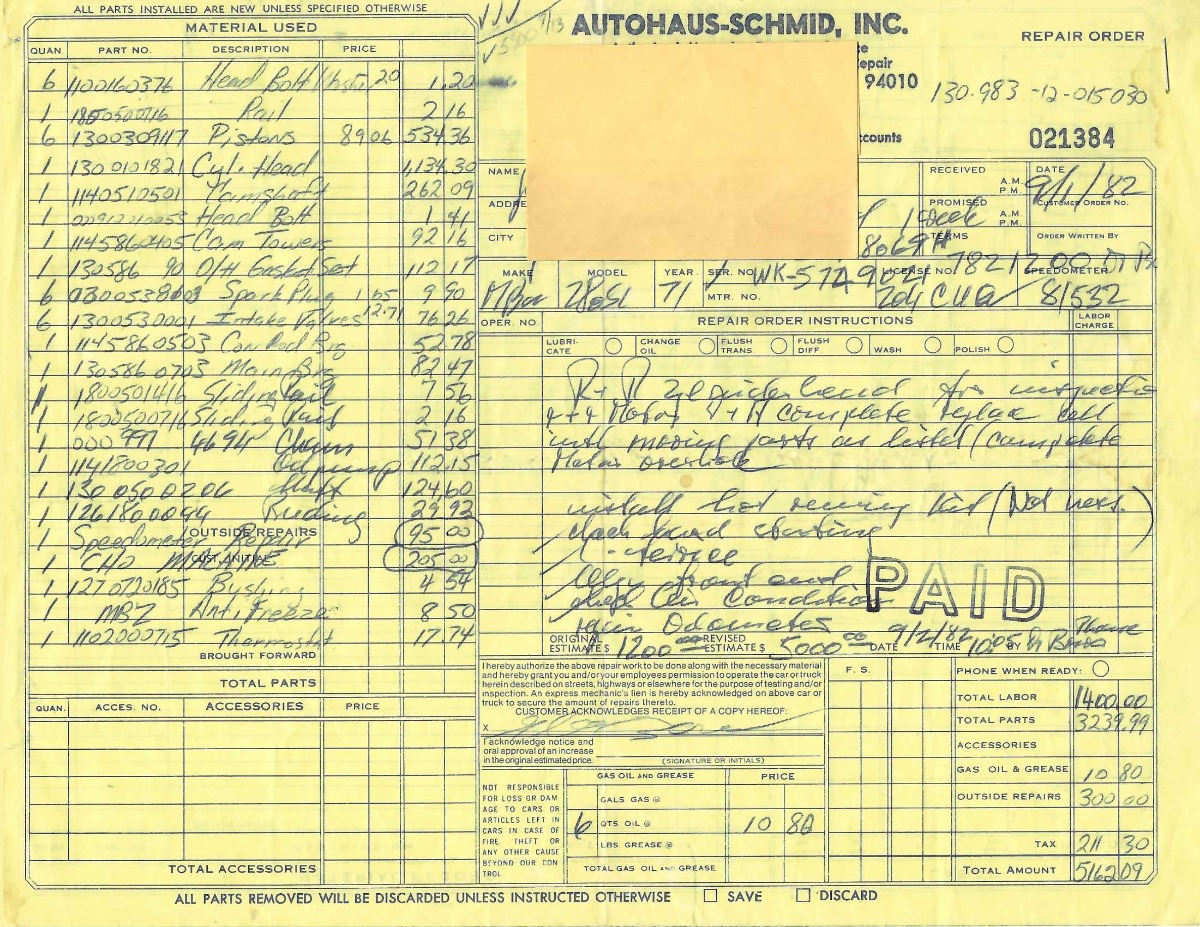 ALL PARTS INSTALLED ARE NEW UNLESS SPECIFIED OTHERWISE
MATERIAL USED
QUAN PART NO. DESCRIPTION PRICE
6 1100160376 Head Bolt 20 1.20
1 1800500716 Rail 2 16
6 1300309117 Pistons 89 06 534.36
1 1300101821 Cyl. Head 1,134.30
1 1140510501 Camshaft 262 09
1 Head Bolt 1 41
1 1145860405 Cam Towers 92 16
1 130586 90 O/H Gasket Set 112.17
6 Spark Plug 1 65 9 90
6 1300530001 Intake Valves 12.71 76 26
1 1145860503 Con Rod Brg 52.78
1 1305860703 Main Brg 82 47
1 1800501416 Sliding Rail 7 56
1 1800500716 Sliding Rail 2 16
1 000 997 4694 Chain 51 38
1 1141800301 Oilpump 112.15
1 130 050 0206 Shaft 124.60
1 1261800094 29 92
OUTSIDE REPAIRS
1 Speedometer Repair 95 00
CUST. INITIAL
1 CHO MACHINE 205 00
1 1270720185 Bushing 4 54
1 MBZ Anti Freeze 8 50
1 1102000715 Thermostat 17.74
BROUGHT FORWARD
TOTAL PARTS
QUAN. ACCES. NO. ACCESSORIES PRICE
TOTAL ACCESSORIES
AUTOHAUS-SCHMID, INC.
REPAIR ORDER
epair
94010
130.983-12-015030
counts
021384
NAME
ADDRE
CITY
RECEIVED A.M. P.M.
DATE 9/1/82
PROMISED 1 week A.M. P.M.
CUSTOMER ORDER No.
TERMS
ORDER WRITTEN BY
MAKE MODEL YEAR SER. NO. LICENSE NO. SPEEDOMETER
MTR. NO.
280SL 71 81532
OPER. NO. REPAIR ORDER INSTRUCTIONS LABOR CHARGE
LUBRICATE CHANGE OIL FLUSH TRANS FLUSH DIFF WASH POLISH
R + R zylinderhead for inspection
Motor complete replace all
with moving parts as listed (complete
Motor overhole
install hot running kit (Not necs.)
check hard starting
service
Align front end
check Air Condition
Odometer
PAID
ORIGINAL ESTIMATE $ 1200 00 REVISED ESTIMATE $ 5000 00 DATE 9/2/82 TIME 10:05 BY Phone
I hereby authorize the above repair work to be done along with the necessary material
and hereby grant you and/or your employees permission to operate the car or truck
herein described on streets, highways or elsewhere for the purpose of testing and/or
inspection. An express mechanic's lien is hereby acknowledged on above car or
truck to secure the amount of repairs thereto.
CUSTOMER ACKNOWLEDGES RECEIPT OF A COPY HEREOF:
X
I acknowledge notice and
oral approval of an increase
in the original estimated price.
(SIGNATURE OR INITIALS)
NOT RESPONSIBLE
FOR LOSS OR DAM
AGE TO CARS OR
ARTICLES LEFT IN
CARS IN CASE OF
FIRE THEFT OR
ANY OTHER CAUSE
BEYOND OUR CON
TROL
GAS OIL AND GREASE PRICE
GALS. GAS @
6 QTS. OIL @ 10 80
LBS. GREASE @
TOTAL GAS OIL AND GREASE
F. S.
PHONE WHEN READY:
TOTAL LABOR 1400.00
TOTAL PARTS 3239.99
ACCESSORIES
GAS OIL & GREASE 10 80
OUTSIDE REPAIRS 300 00
TAX 211 30
TOTAL AMOUNT 5162 09
ALL PARTS REMOVED WILL BE DISCARDED UNLESS INSTRUCTED OTHERWISE SAVE DISCARD